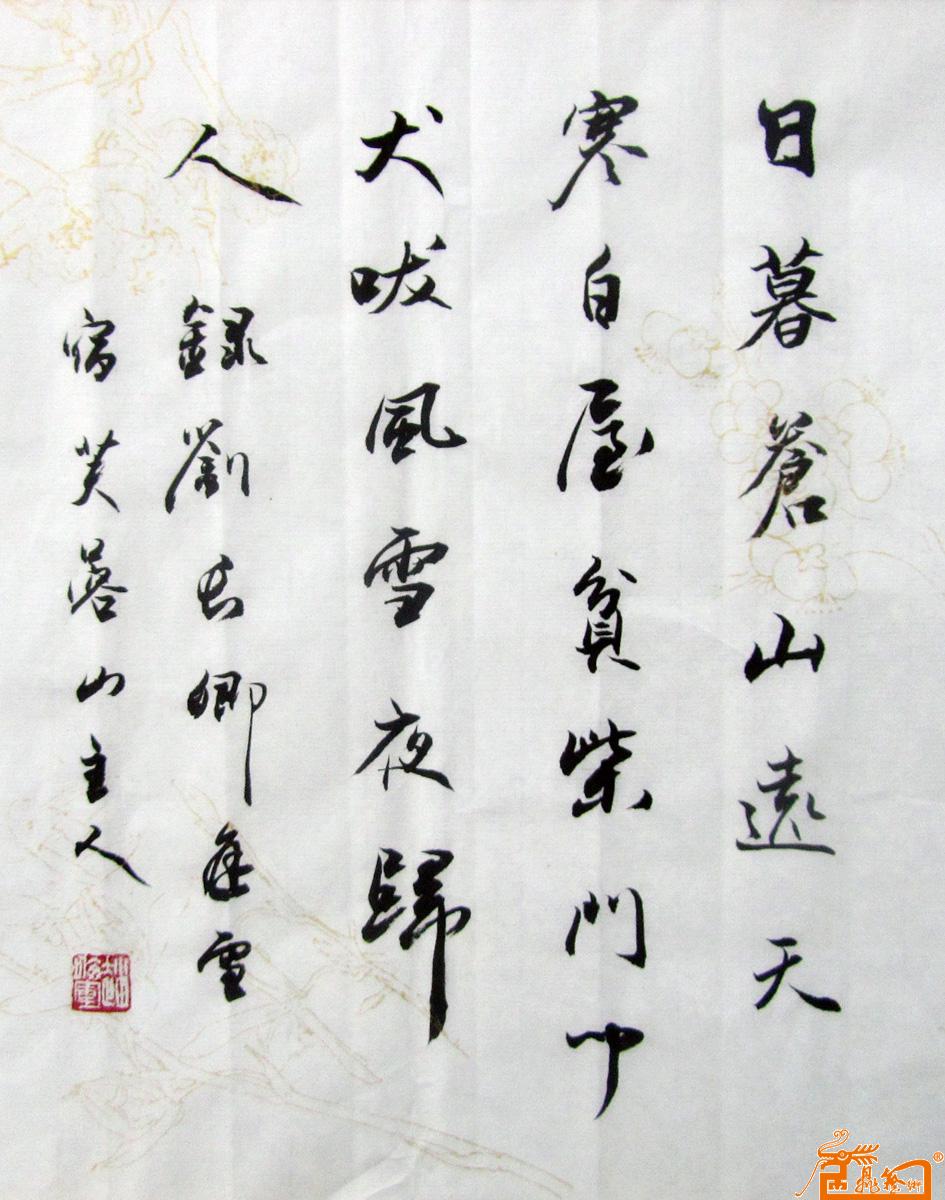 日暮蒼山遠天
寒白屋貧柴門聞
犬吠風雪夜歸
人 錄劉長卿逢雪
宿芙蓉山主人